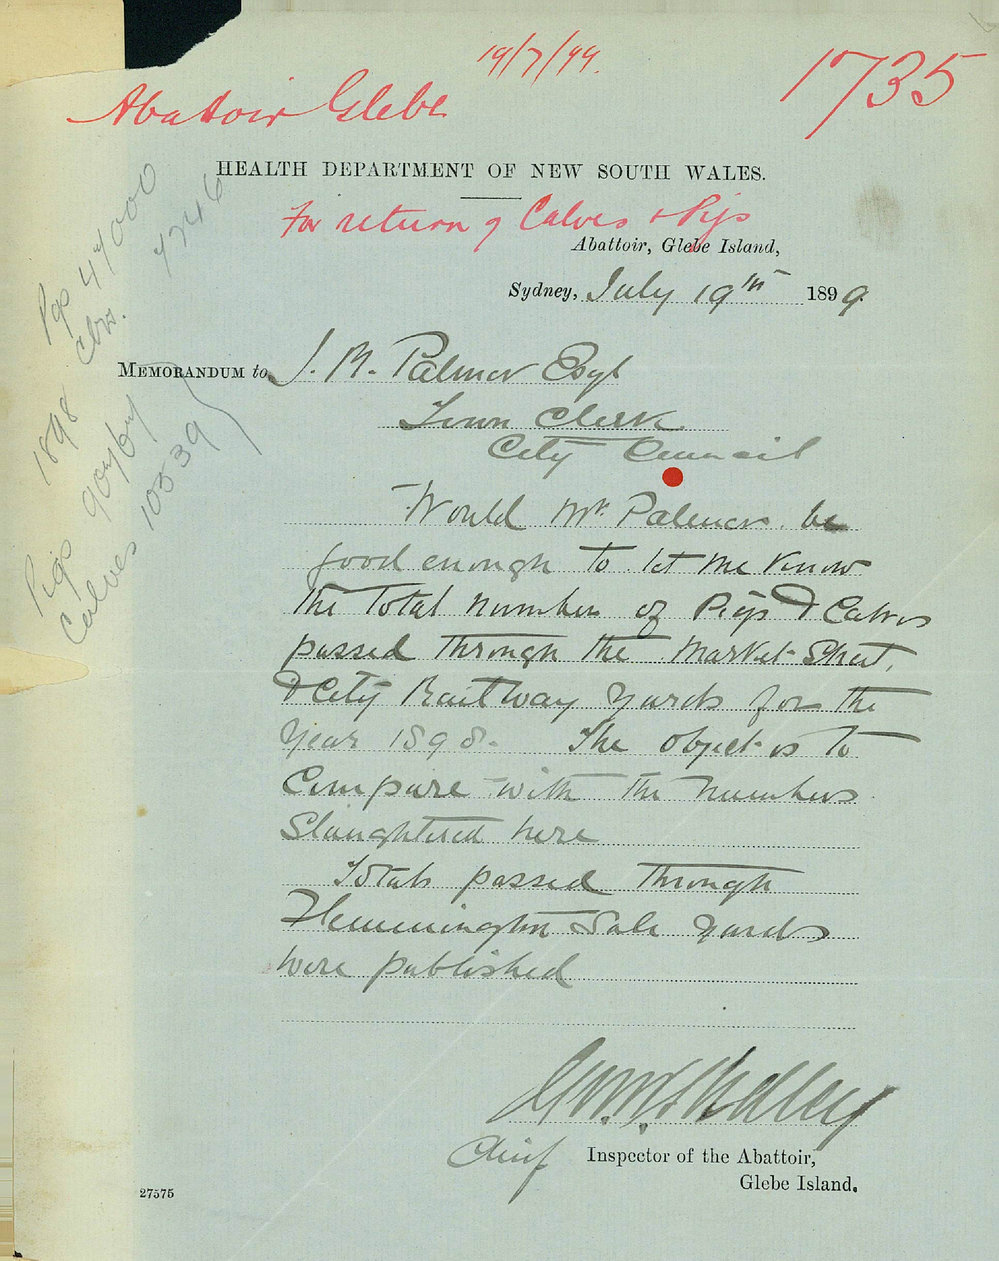 19/7/99.
1735
Abattoir Glebe
HEALTH DEPARTMENT OF NEW SOUTH WALES.
For return of Calves & Pigs
Abattoir, Glebe Island,
Sydney, July 19th 1899.
MEMORANDUM to J. M. Palmer Esqr
Town Clerk
City Council
Would Mr Palmer be
good enough to let me know
the total number of Pigs & Calves
passed through the Market Street,
& City Railway Yards for the
Year 1898. The object is to
Compare with the numbers
Slaughtered here
Totals passed through
Flemmington Sale Yards
were published
Chief Inspector of the Abattoir,
Glebe Island.
27575
Pigs 47000
7746
1898
Pigs
Calves 10539